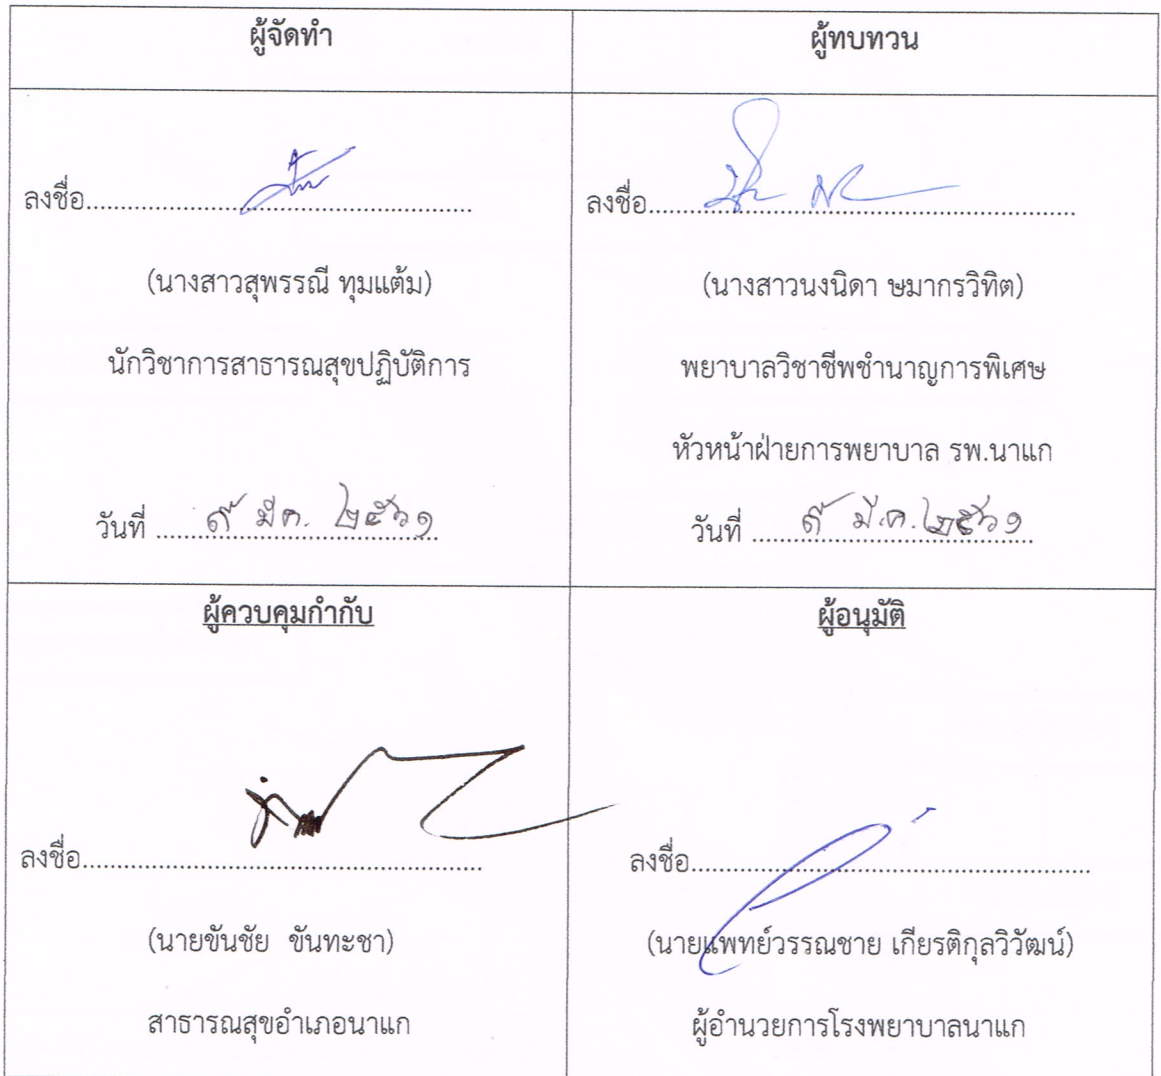 ผู้จัดทำ
ลงชื่อ
(นางสาวสุพรรณี ทุมแต้ม)
นักวิชาการสาธารณสุขปฏิบัติการ
วันที่ ๙ มีค. ๒๕๖๑
ผู้ทบทวน
ลงชื่อ
(นางสาวนงนิดา ษมากรวิทิต)
พยาบาลวิชาชีพชำนาญการพิเศษ
หัวหน้าฝ่ายการพยาบาล รพ.นาแก
วันที่ ๙ มี.ค. ๒๕๖๑
ผู้ควบคุมกำกับ
ลงชื่อ
(นายขันชัย ขันทะชา)
สาธารณสุขอำเภอนาแก
ผู้อนุมัติ
ลงชื่อ
(นายแพทย์วรรณชาย เกียรติกุลวิวัฒน์)
ผู้อำนวยการโรงพยาบาลนาแก